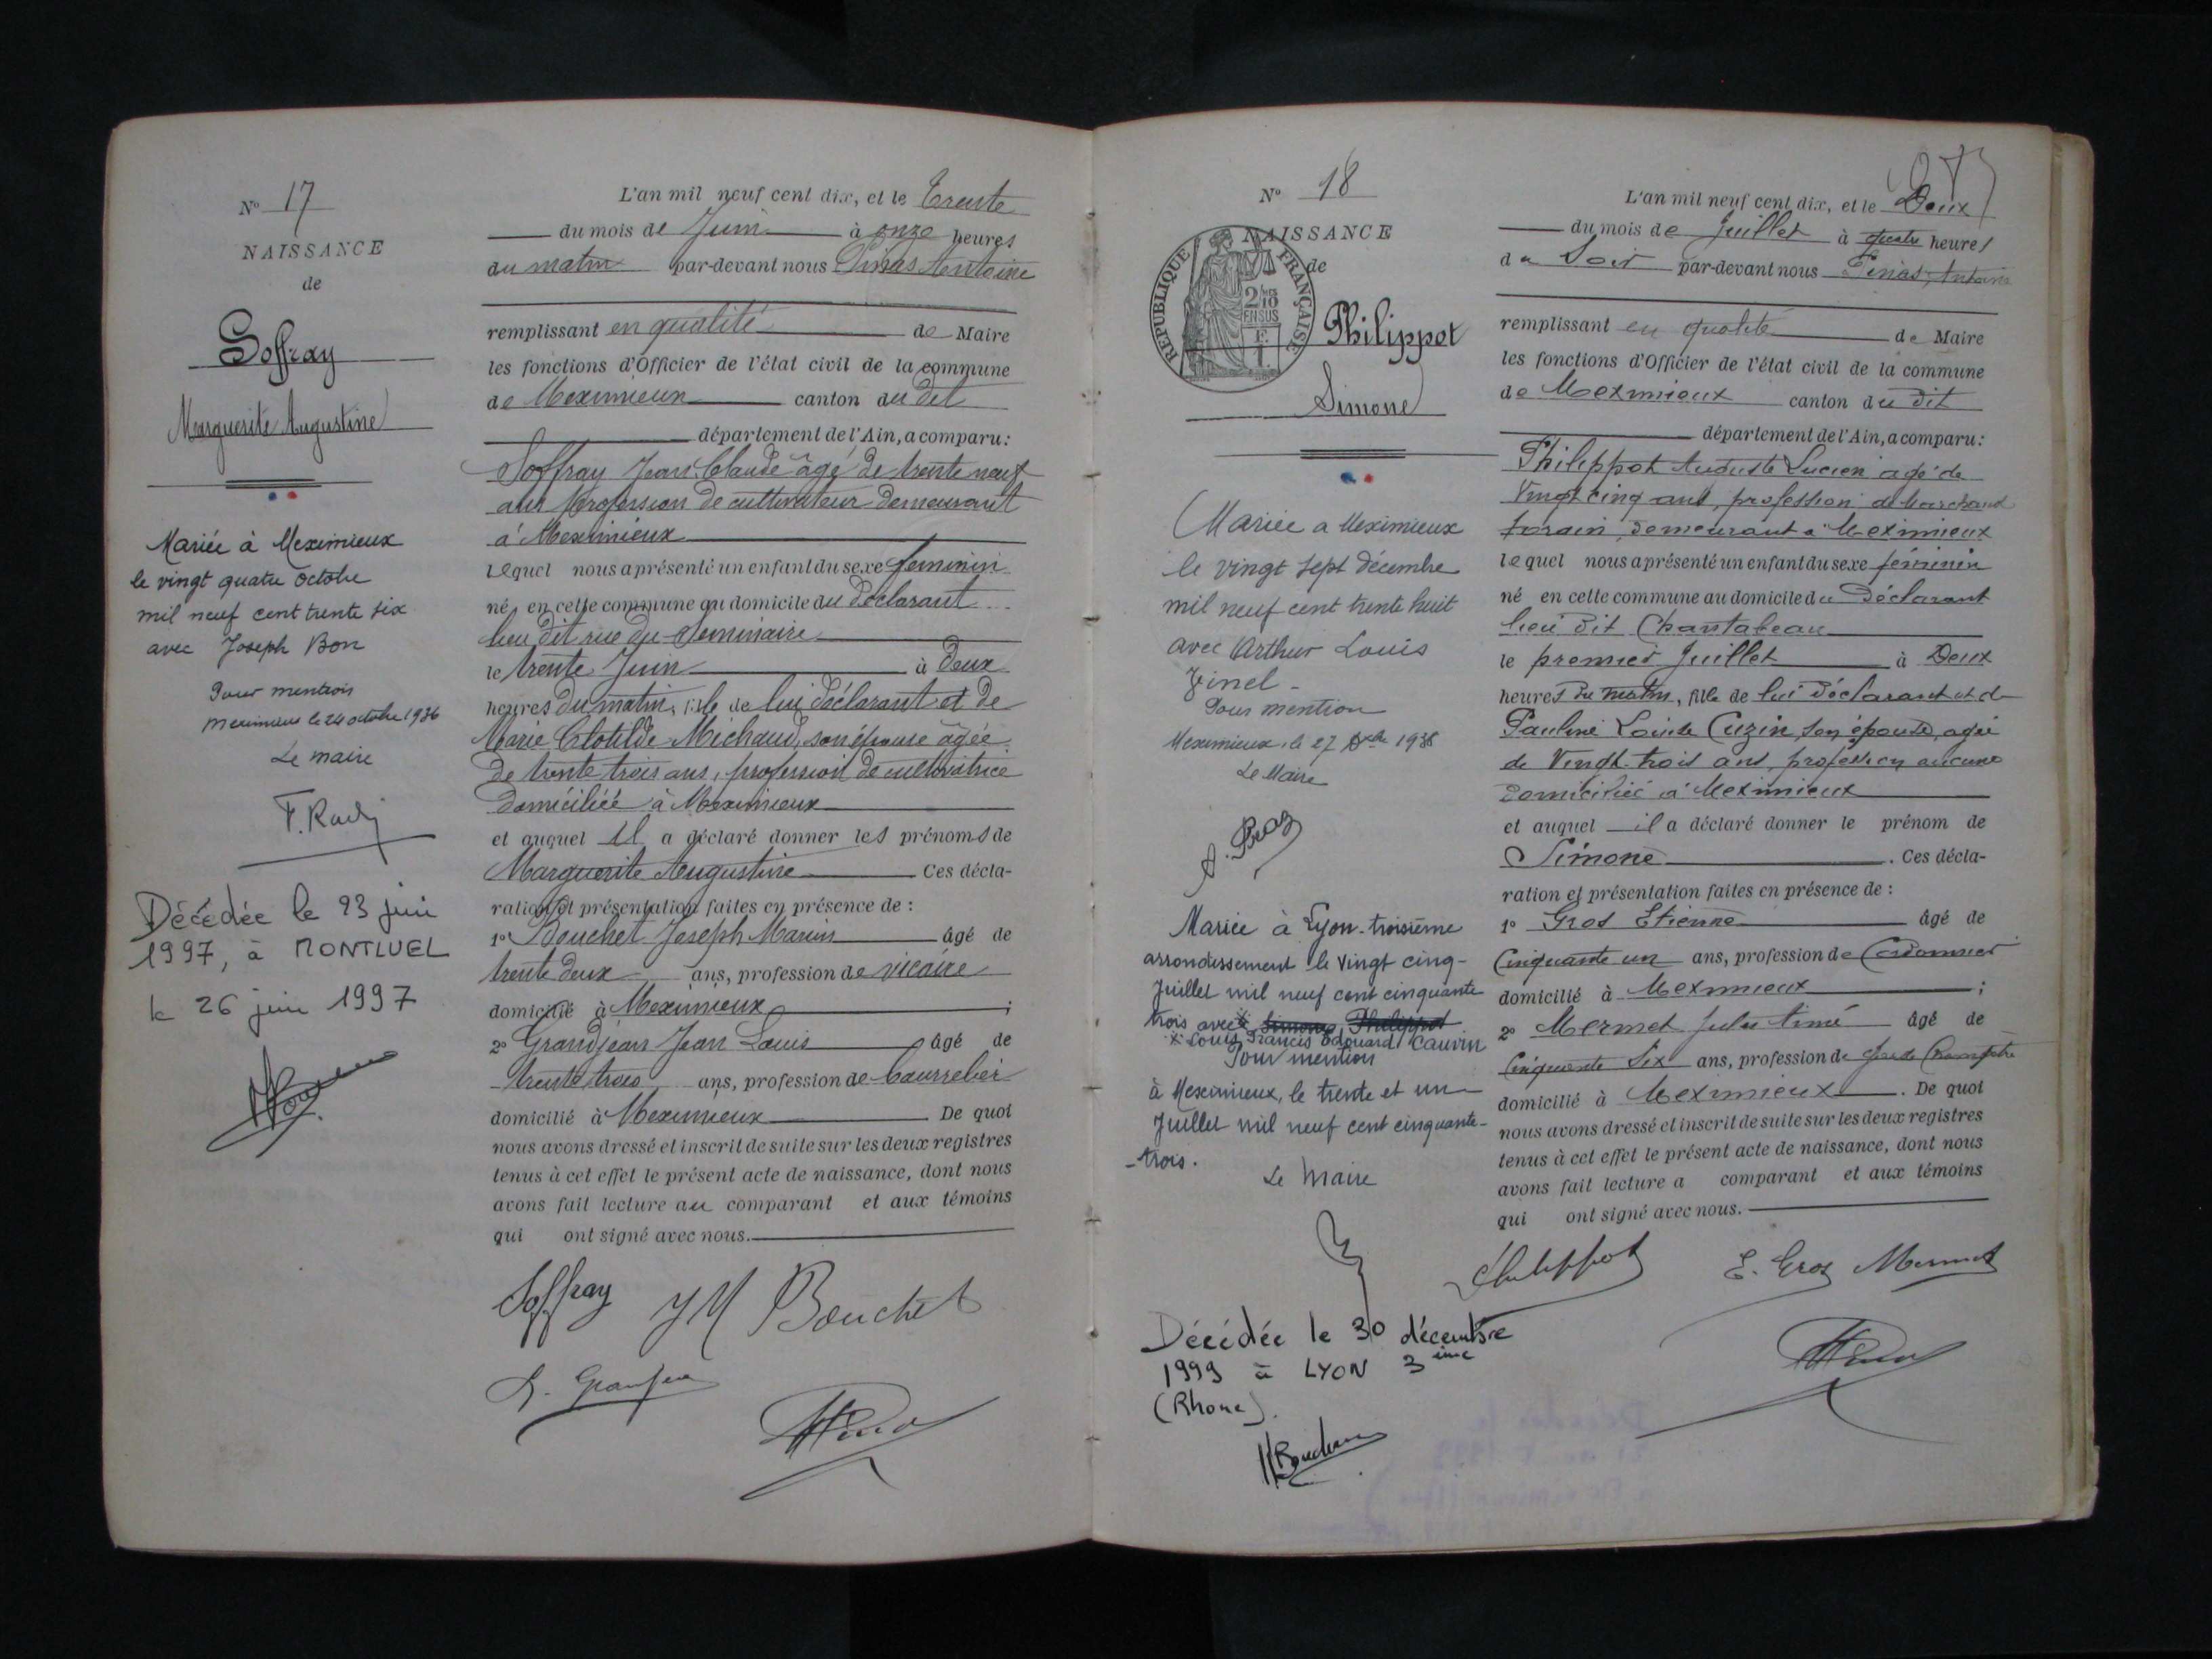 N° 17
NAISSANCE
de
Soffray
Marguerite Augustine
Mariée à Meximieux
le vingt quatre octobre
mil neuf cent trente six
avec Joseph Bon
Pour mention
Meximieux le 24 octobre 1936
Le maire
Décédée le 23 juin
1997, à MONTLUEL
le 26 juin 1997
L'an mil neuf cent dix, et le Trente
du mois de Juin à onze heures
du matin par-devant nous Antoine
remplissant en qualité de Maire
les fonctions d'Officier de l'état civil de la commune
de Meximieux canton du dit
département de l'Ain, a comparu:
Soffray Jean Claude âgé de trente neuf
ans profession de cultivateur demeurant
à Meximieux
Lequel nous a présenté un enfant du sexe féminin
né, en cette commune au domicile du déclarant
lieu dit rue du Séminaire
le trente Juin à deux
heures du matin, fille de lui déclarant et de
Marie Clotilde Michaud, son épouse âgée
de trente trois ans, profession de cultivatrice
domiciliée à Meximieux
et auquel il a déclaré donner les prénoms de
Marguerite Augustine Ces décla-
ration et présentation faites en présence de :
1° Bouchet Joseph Marius âgé de
trente deux ans, profession de vicaire
domicilié à Meximieux ;
2° Grandjean Jean Louis âgé de
trente trois ans, profession de bourrelier
domicilié à Meximieux De quoi
nous avons dressé et inscrit de suite sur les deux registres
tenus à cet effet le présent acte de naissance, dont nous
avons fait lecture au comparant et aux témoins
qui ont signé avec nous.
Soffray JM Bouchet
N° 18
NAISSANCE
de
REPUBLIQUE FRANÇAISE
2/10
EN SUS
Philippot
Simone
Mariée a Meximieux
le vingt sept décembre
mil neuf cent trente huit
avec Arthur Louis
Pour mention
Meximieux, le 27 Xbre 1938
Le Maire
Mariée à Lyon-troisième
arrondissement le vingt cinq-
Juillet mil neuf cent cinquante
trois avec x Simone Philippot
x Louis Francis Edouard Cauvin
Pour mention
à Meximieux, le trente et un
Juillet mil neuf cent cinquante-
-trois.
Le Maire
Décédée le 30 décembre
1999 à LYON 3ème
(Rhone).
L'an mil neuf cent dix, et le Deux
du mois de Juillet à quatre heures
du Soir par-devant nous Antoine
remplissant en qualité de Maire
les fonctions d'Officier de l'état civil de la commune
de Meximieux canton du dit
département de l'Ain, a comparu:
Philippot Auguste Lucien agé de
Vingt cinq ans, profession de Marchand
forain, demeurant à Meximieux
lequel nous a présenté un enfant du sexe féminin
né en cette commune au domicile du Déclarant
lieu dit Chantabeau
le premier Juillet à Deux
heures du matin, fille de lui Déclarant et de
Pauline Louise Cuzin, son épouse, agée
de Vingt-trois ans, profession aucune
Domiciliée à Meximieux
et auquel il a déclaré donner le prénom de
Simone . Ces décla-
ration et présentation faites en présence de :
1° Gros Etienne âgé de
Cinquante un ans, profession de Cordonnier
domicilié à Meximieux ;
2° Mermet Jules âgé de
Cinquante Six ans, profession de Garde Champêtre
domicilié à Meximieux . De quoi
nous avons dressé et inscrit de suite sur les deux registres
tenus à cet effet le présent acte de naissance, dont nous
avons fait lecture a comparant et aux témoins
qui ont signé avec nous.
Philippot E. Gros Mermet